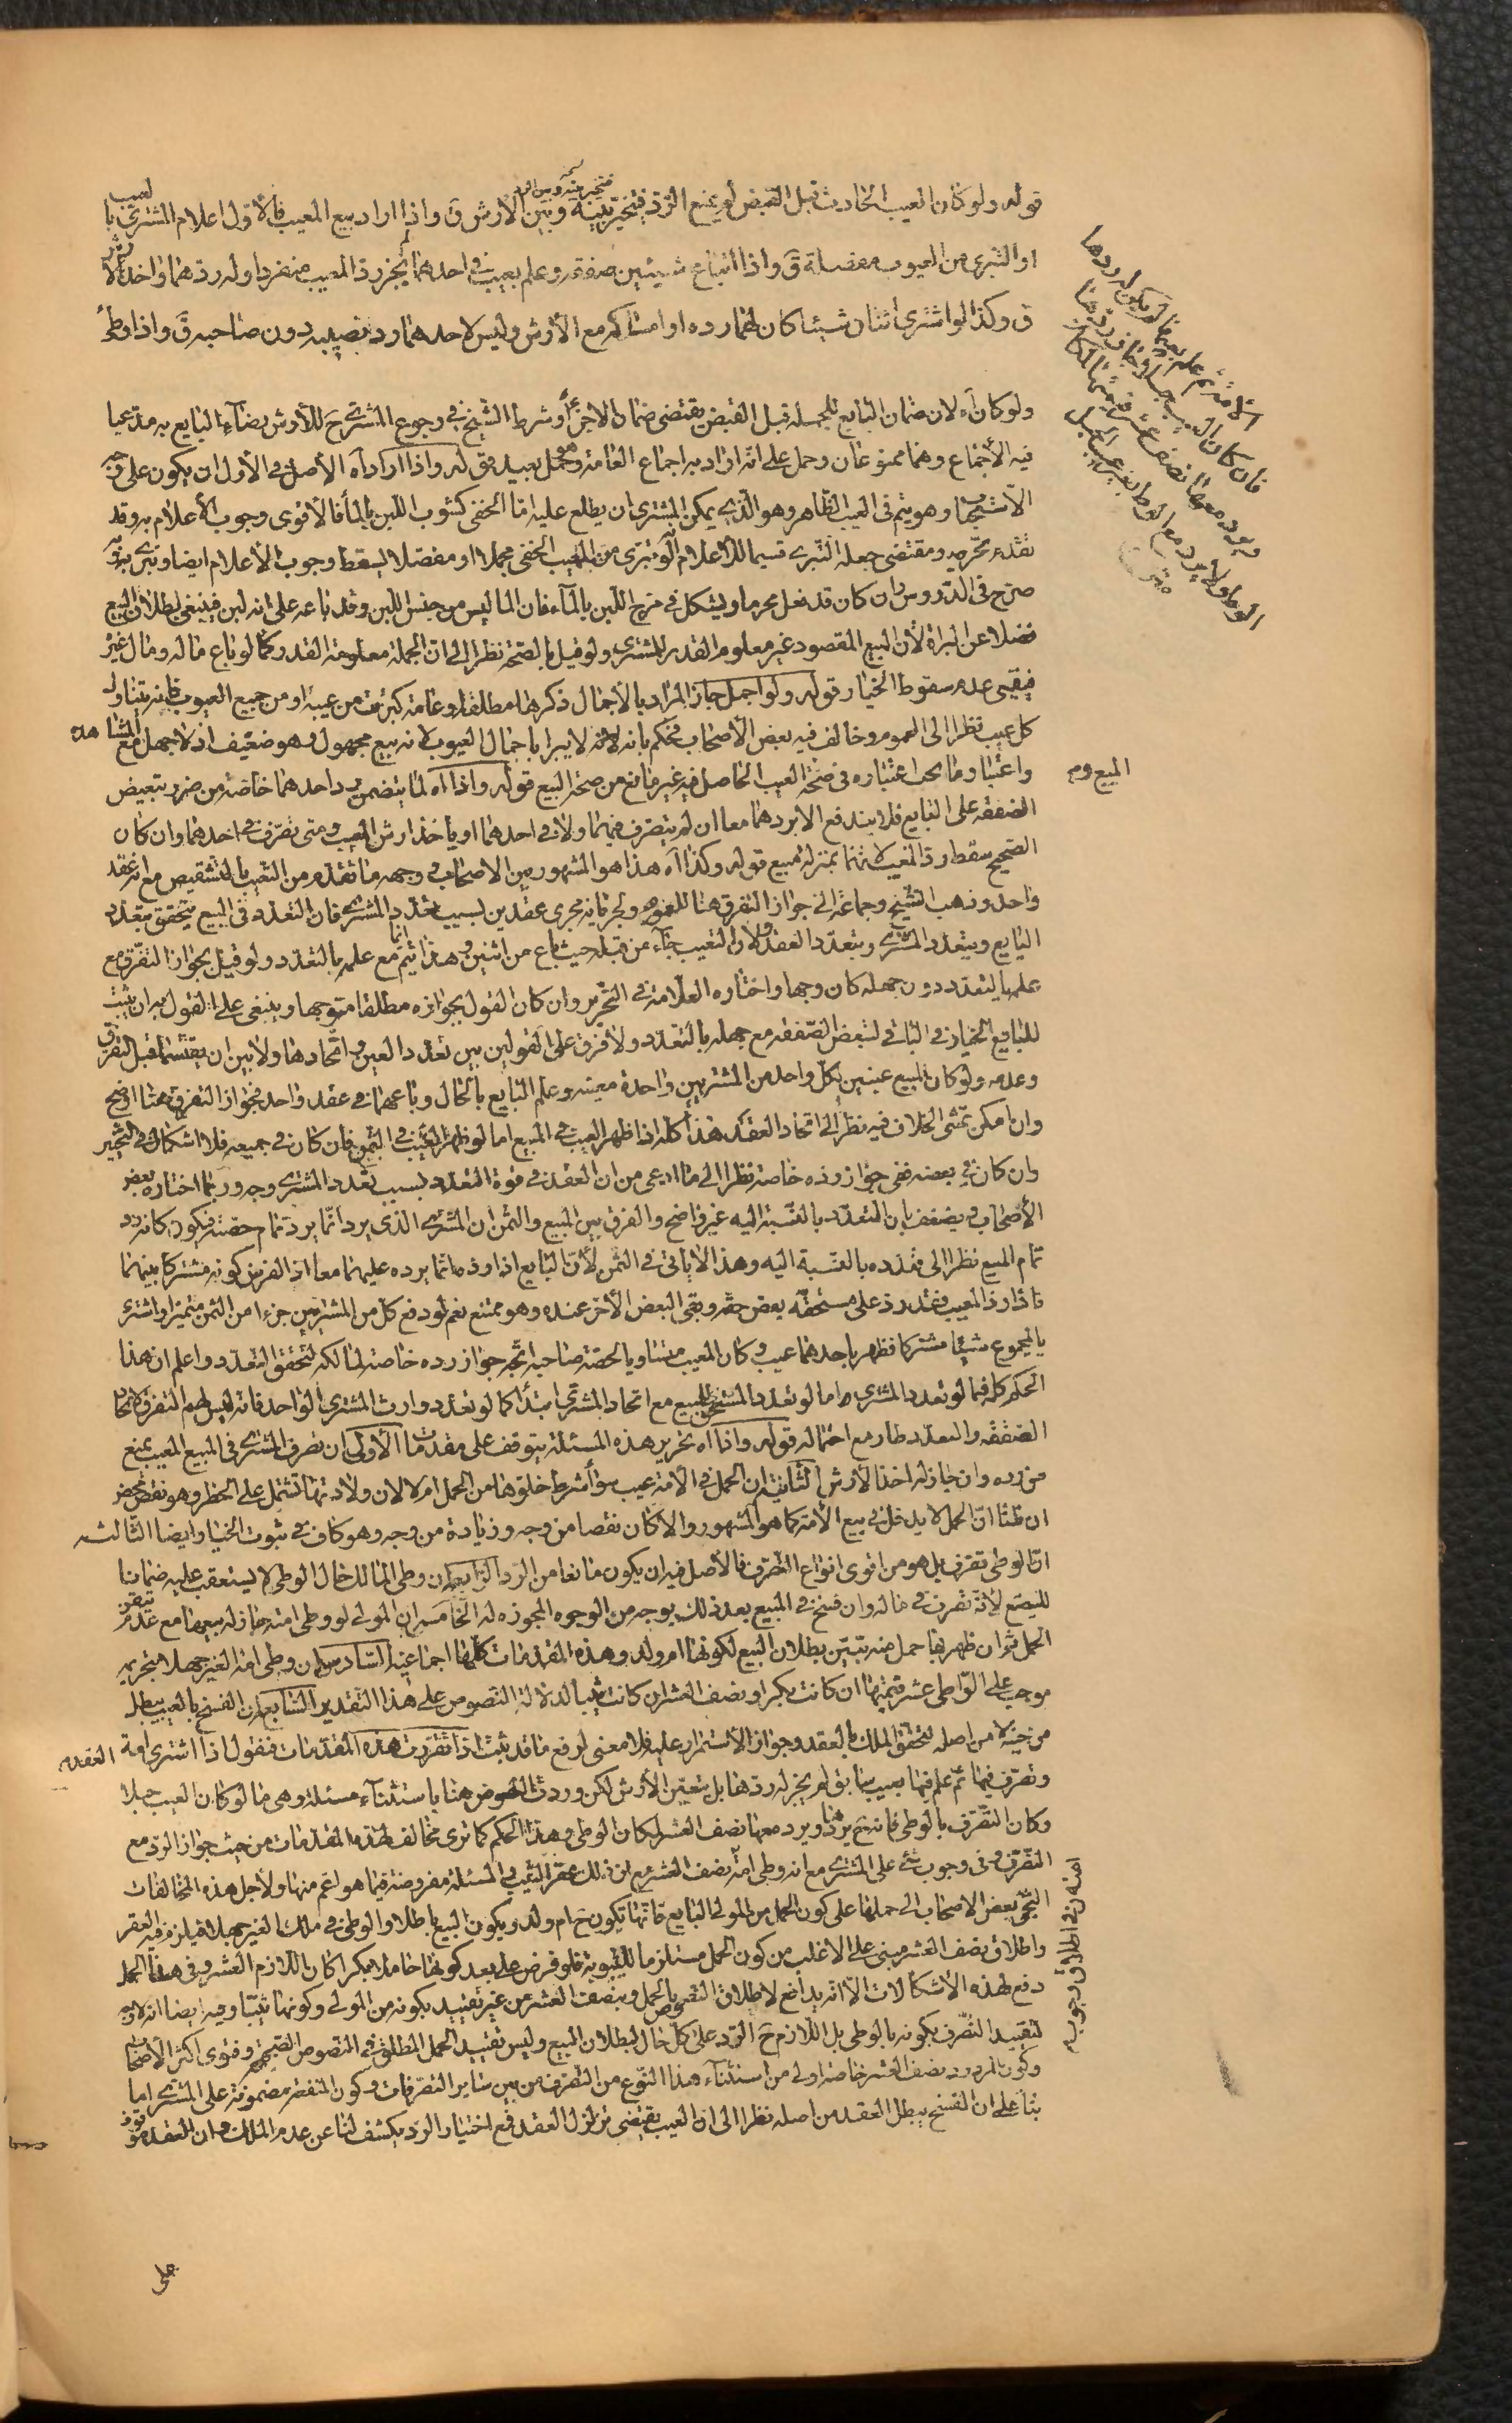 قوله ولو كان العيب الحادث قبل القبض لم يمنع الرد فيتخير بينه وبين الأرش ق واذا اراد بيع المعيب فالأولى اعلام المشتري بالعيب
او التبري من العيوب مفصلة ق واذا ابتاع شيئين صفقة وعلم بعيب في احدهما لم يجز رد المعيب منفردا وله ردهما واخذ الأرش
ق وكذا لو اشترى اثنان شيئا كان لهما رده او امساكه مع الأرش وليس لاحدهما رد نصيبه دون صاحبه ق واذا وطئ
الامة ثم علم بعيبها لم يكن له ردها
فان كان العيب حبلا جاز له ردها
ويرد معها نصف عشر قيمتها لمكان
الوطي ولا يرد مع الوطي بغير عيب الحبل
ولو كان اه لان ضمان البايع للجملة قبل القبض يقتضي ضمان الاجزاء وشرط الشيخ في رجوع المشتري ح للأرش رضاء البايع به مدعيا
فيه الأجماع وهما ممنوعان وحمل على انه اراد به اجماع العامة وهو محمل بعيد قوله واذا اراد اه الأصل في الأول ان يكون على وجه
الاستحباب وهو يتم في العيب الظاهر وهو الذي يمكن المشتري ان يطلع عليه اما الخفي كشوب اللبن بالماء فالأقوى وجوب الأعلام به وقد
تقدم تحريمه ومقتضى جعله التبري قسيما للأعلام انه لو تبرى من العيب الخفي مجملا او مفصلا يسقط وجوب الأعلام ايضا وتبرى به
صرح في الدروس وان كان قد فعل محرما ويشكل في مزج اللبن بالماء فان الماء ليس من جنس اللبن وقد باعه على انه لبن فينبغي بطلان البيع
فضلا عن البراة لأن المبيع المقصود غير معلوم القدر للمشتري ولو قيل بالصحة نظرا الى ان الجملة معلومة القدر كما لو باع ماله ومال غيره
فيبقى عدم سقوط الخيار قوله ولو اجمل جاز المراد بالأجمال ذكرها مطلقا وعامة كبرئت من عيبه او من جميع العيوب فانه يتناول
كل عيب نظرا الى العموم وخالف فيه بعض الأصحاب فحكم بانه لا يبرا باجمال العيوب لانه بيع مجهول وهو ضعيف اذ لا جهل مع المشاهدة
واعتبار ما يجب اعتباره في صحة المبيع والعيب الحاصل فيه غير مانع من صحة البيع قوله واذا اه لما يتضمن رد احدهما خاصة من ضرر تبعيض
الصفقة على البايع فلا يندفع الا بردهما معا ان لم يتصرف فيهما ولا في احدهما او ياخذ ارش العيب ومتى تصرف في احدهما وان كان
الصحيح سقط رد المعيب لانهما بمنزلة مبيع قوله وكذا اه هذا هو المشهور بين الاصحاب وجهه ما تقدم من التعيب بالتشقيص مع انه عقد
واحد وذهب الشيخ وجماعة الى جواز التفرق هنا للعموم ولجريانه مجرى عقدين لسبب تعدد المشتري فان التعدد في البيع يتحقق بتعدد
البايع وبتعدد المشتري وبتعدد العقد ولان التعيب جاء من قبله حيث باع من اثنين وهذا انما يتم مع علمه بالتعدد ولو قيل بجواز التفرق مع
علمه بالتعدد دون جهله كان وجها واختاره العلامة في التحرير وان كان القول بجوازه مطلقا متوجها وينبغي على القول به ان يثبت
للبايع الخيار في الباقي لتبعض الصفقة مع جهله بالتعدد ولا فرق على القولين بين تعدد العين واتحادها ولا بين ان يقتسماها قبل التفرق
وعدمه ولو كان المبيع عينين لكل واحد من المشتريين واحدة معينة وعلم البايع بالحال وباعهما في عقد واحد فجواز التفرق هنا اوضح
وان امكن تمشي الخلاف فيه نظرا الى اتحاد العقد هذا كله اذا ظهر العيب في المبيع اما لو ظهر العيب في الثمن فان كان في جميعه فلا اشكال في التخيير
وان كان في بعضه ففي جواز رده خاصة نظرا الى ما ادعي من ان العقد في قوة المتعدد بسبب تعدد المشتري وجه وربما اختاره بعض
الأصحاب ويضعف بان التعدد بالنسبة اليه غير واضح والفرق بين المبيع والثمن ان المشتري الذي يرد انما يرد تمام حصته فيكون كانه رد
تمام المبيع نظرا الى تعدده بالنسبة اليه وهذا لا ياتي في الثمن لأن البايع اذا رده فانما يرده عليهما معا اذ الفرض كونه مشتركا بينهما
فاذا رد المعيب فقد رد على مستحقه بعض حقه وبقي البعض الأخر عنده وهو ممتنع نعم لو دفع كل من المشتريين جزءا من الثمن متميزا واشتريا
بالمجموع شيئا مشتركا فظهر باحدهما عيب وكان المعيب مساويا لحصة صاحبه اتجه جواز رده خاصة لمالكه لتحقق التعدد واعلم ان هذا
الحكم كله فيما لو تعدد المشتري اما لو تعدد المستحق للمبيع مع اتحاد المشتري ابتداء كما لو تعدد وارث المشتري الواحد فانه ليس لهم التفرق لاتحاد
الصفقة والتعدد طار مع احتماله قوله واذا اه تحرير هذه المسئلة يتوقف على مقدمات الأولى ان تصرف المشتري في المبيع المعيب يمنع
من رده وان جاز له اخذ الأرش الثانية ان الحمل في الأمة عيب سواء شرط خلوها من الحمل ام لا لان ولادتها تشتمل على الخطر وهو نقص محض
ان قلنا ان الحمل لا يدخل في بيع الأمة كما هو المشهور والا كان نقصا من وجه وزيادة من وجه وهو كاف في ثبوت الخيار ايضا الثالثة
ان الوطي تصرف بل هو من اقوى انواع التصرف فالأصل فيه ان يكون مانعا من الرد الرابعة ان وطي المالك حال الوطي لا يستعقب عليه ضمانا
للبضع لأنه تصرف في ماله وان فسخ في المبيع بعد ذلك بوجه من الوجوه المجوزة له الخامسة ان المولى لو وطي امته جاز له بيعها مع عدم تبين
الحمل ثم ان ظهر بها حمل منه تبين بطلان البيع لكونها ام ولد وهذه المقدمات كلها اجماعية السادسة ان وطي امة الغير جهلا بتحريمه
موجب على الواطي عشر قيمتها ان كانت بكرا ونصف العشر ان كانت ثيبا لدلالة النصوص على هذا التقدير السابعة ان الفسخ بالعيب يبطل العقد
من حينه لا من اصله لتحقق الملك بالعقد وجواز الاستمرار عليه فلا معنى لرفع ما قد ثبت اذا تقررت هذه المقدمات فنقول اذا اشترى امة
وتصرف فيها ثم علم فيها بعيب سابق لم يجز له ردها بل يتعين الأرش لكن وردت النصوص هنا باستثناء مسئلة وهي ما لو كان العيب حبلا
وكان التصرف بالوطي فانه ح يردها ويرد معها نصف العشر لمكان الوطي وهذا الحكم كما ترى مخالف لهذه المقدمات من حيث جواز الرد مع
التصرف وفي وجوب شئ على المشتري مع انه وطي امته وفي اطلاق وجوب نصف العشر مع ان ذلك عقر الثيب والمسئلة مفروضة فيما هو اعم منها ولأجل هذه المخالفات
التجئ بعض الاصحاب الى حملها على كون الحمل من المولى البايع فانها تكون ح ام ولد ويكون البيع باطلا والوطي في ملك الغير جهلا فيلزم فيه العقر
واطلاق نصف العشر مبني على الاغلب من كون الحمل مستلزما للثيبوبة فلو فرض على بعد كونها حاملا بكرا كان اللازم العشر وفي هذا الحمل
دفع لهذه الأشكالات الا انه يدافع لاطلاق النصوص بالحمل وبنصف العشر من غير تقييد بكونه من المولى وكونها ثيبا وفيه ايضا انه لا وجه
لتقييد التصرف بكونه بالوطي بل اللازم ح الرد على كل حال لبطلان البيع وليس تقييد الحمل المطلق في النصوص الصحيحة وفتوى اكثر الأصحاب
وكون المردود نصف العشر خاصة اولى من استثناء هذا النوع من التصرف من بين ساير التصرفات وكون المنفعة مضمونة على المشتري اما
بناء على ان الفسخ يبطل العقد من اصله نظرا الى ان العيب يقتضي تزلزل العقد فمع اختيار الرد يكشف لنا عن عدم الملك وان العقد موقوف
على